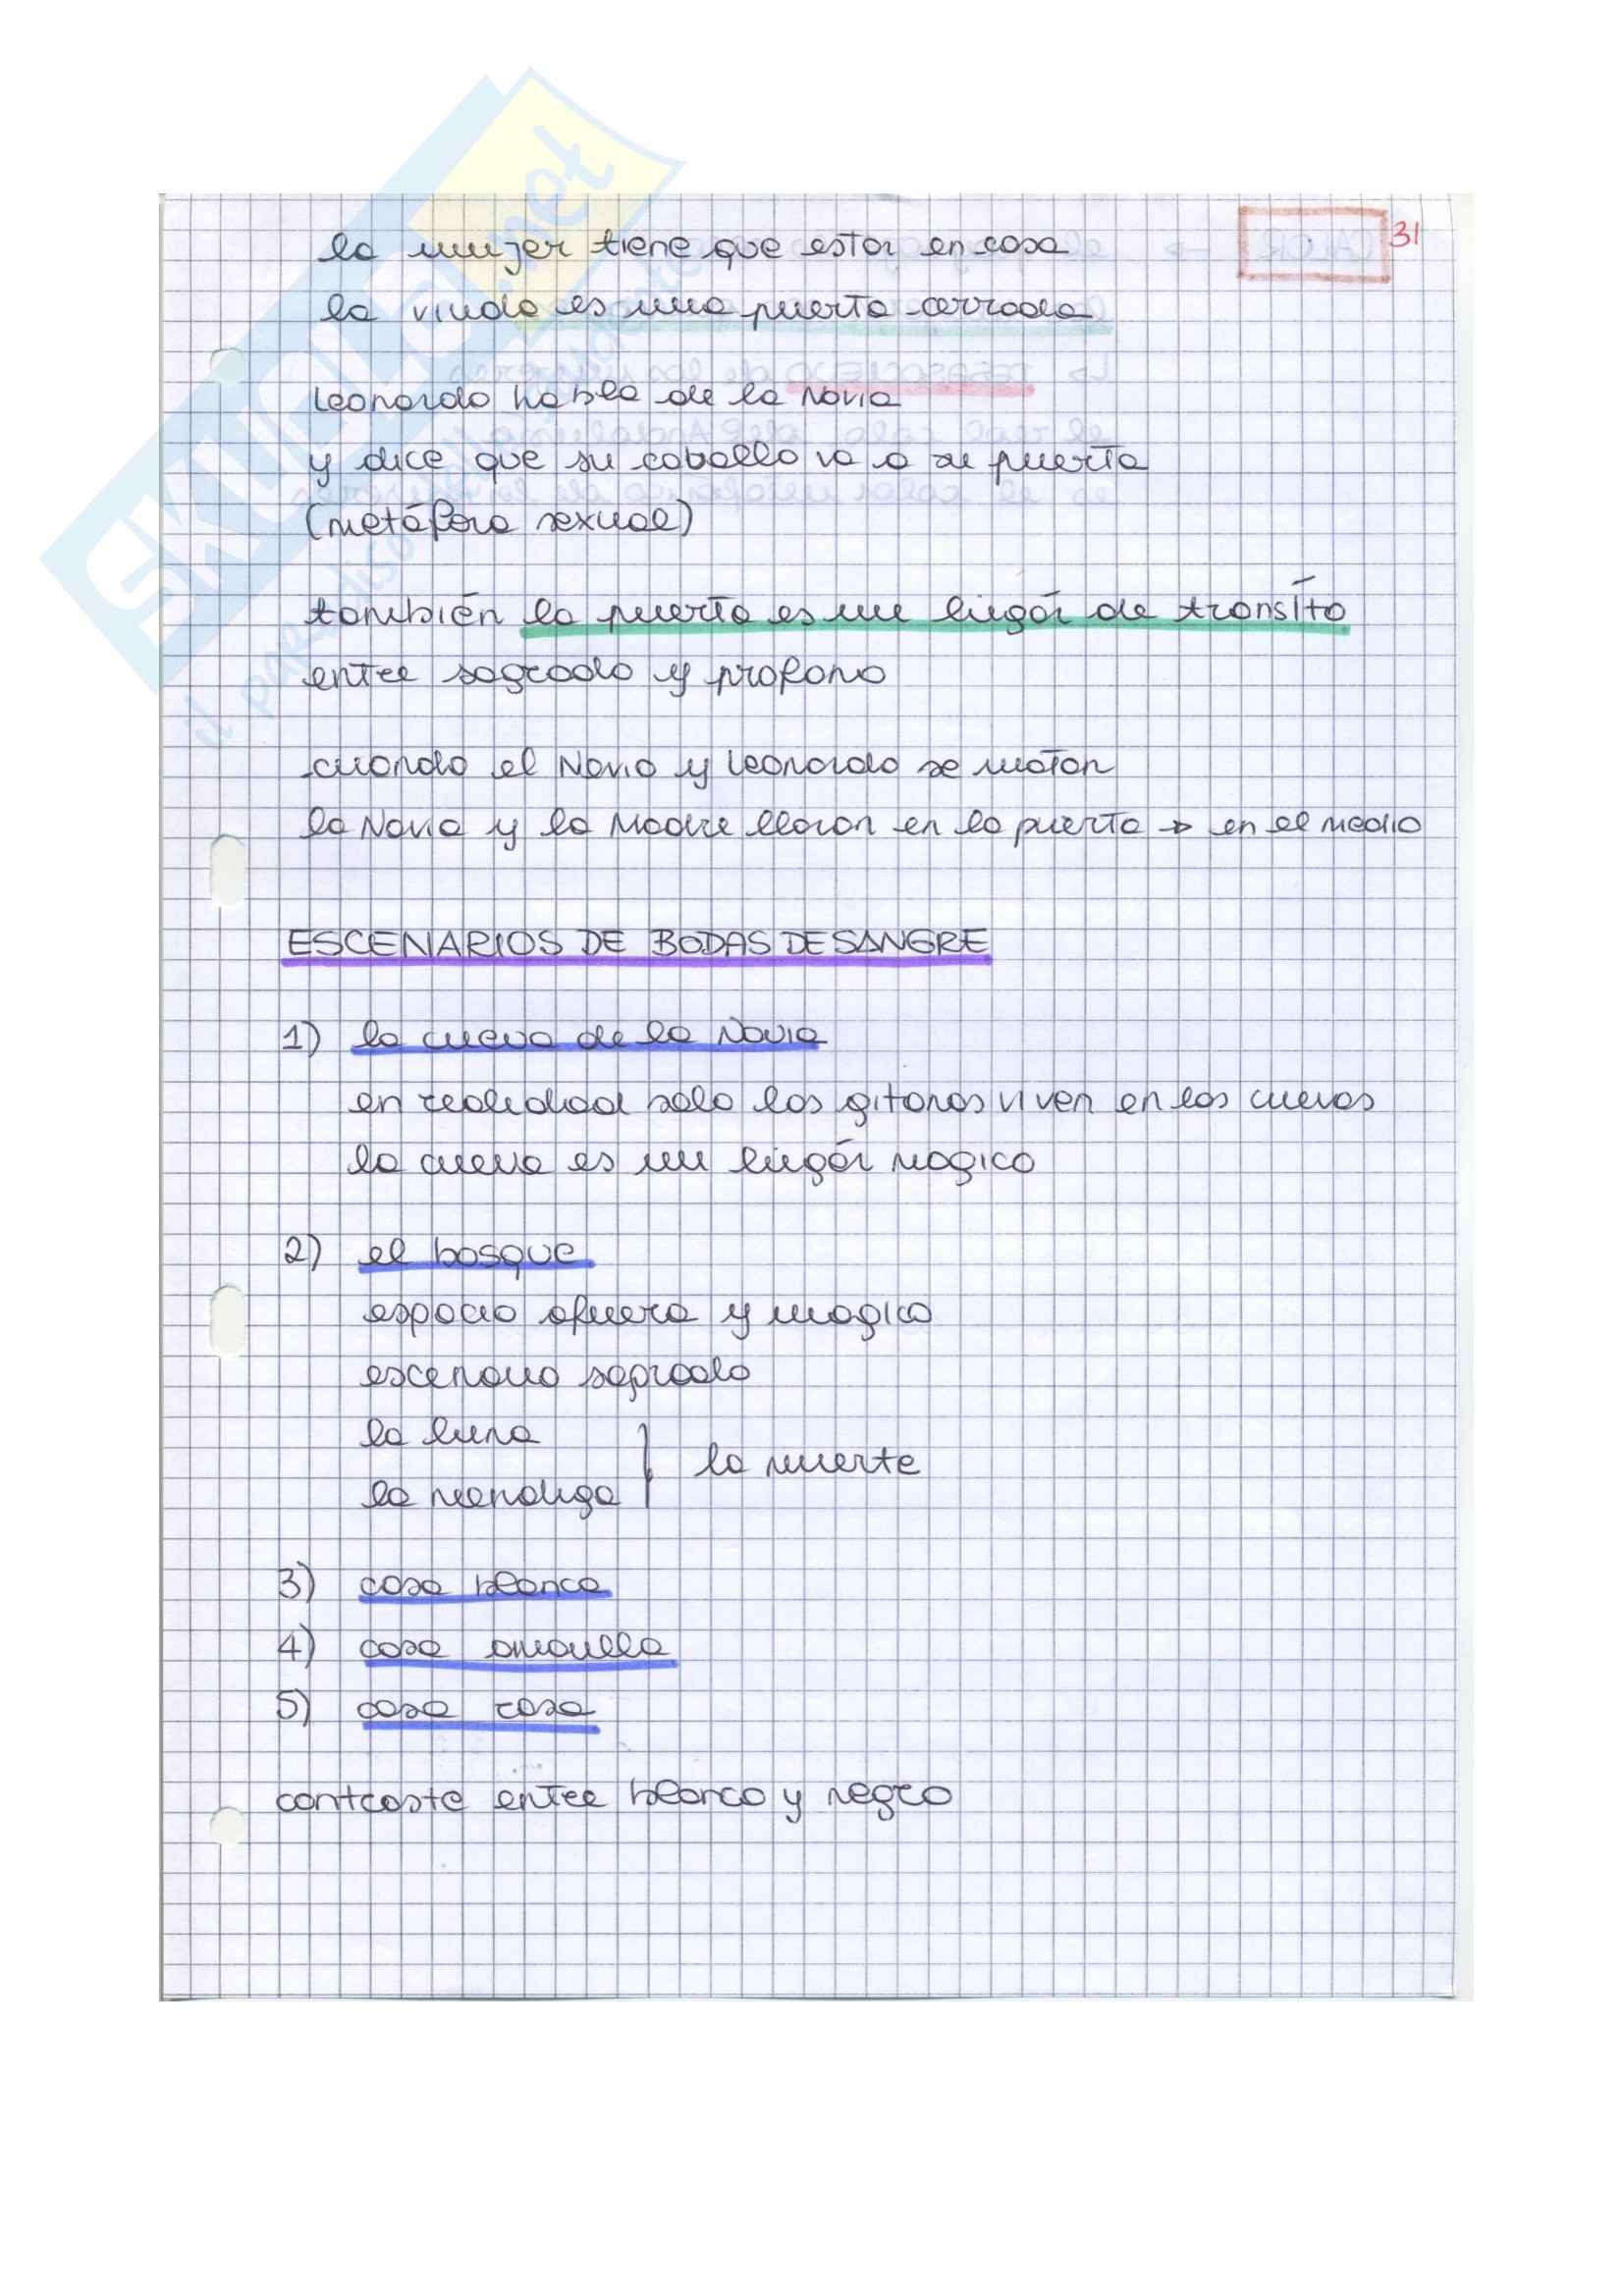 31
la mujer tiene que estar en casa
la viuda es una puerta cerrada
Leonardo habla de la Novia
y dice que su caballo va a su puerta
(metáfora sexual)
también la puerta es un lúgár de transíto
entre sagrado y profano
cuando el Novio y Leonardo se matan
la Novia y la Madre lloran en la puerta → en el medio
ESCENARIOS DE BODAS DE SANGRE
1) la cueva de la Novia
en realidad solo los gitanos viven en las cuevas
la cueva es un lúgár magico
2) el bosque
espacio afuera y magico
escenario sagrado
la luna
la mendiga } la muerte
3) casa blanca
4) casa amarilla
5) casa rosa
contraste entre blanco y negro
SKUOLA.net
il paradiso dello studente